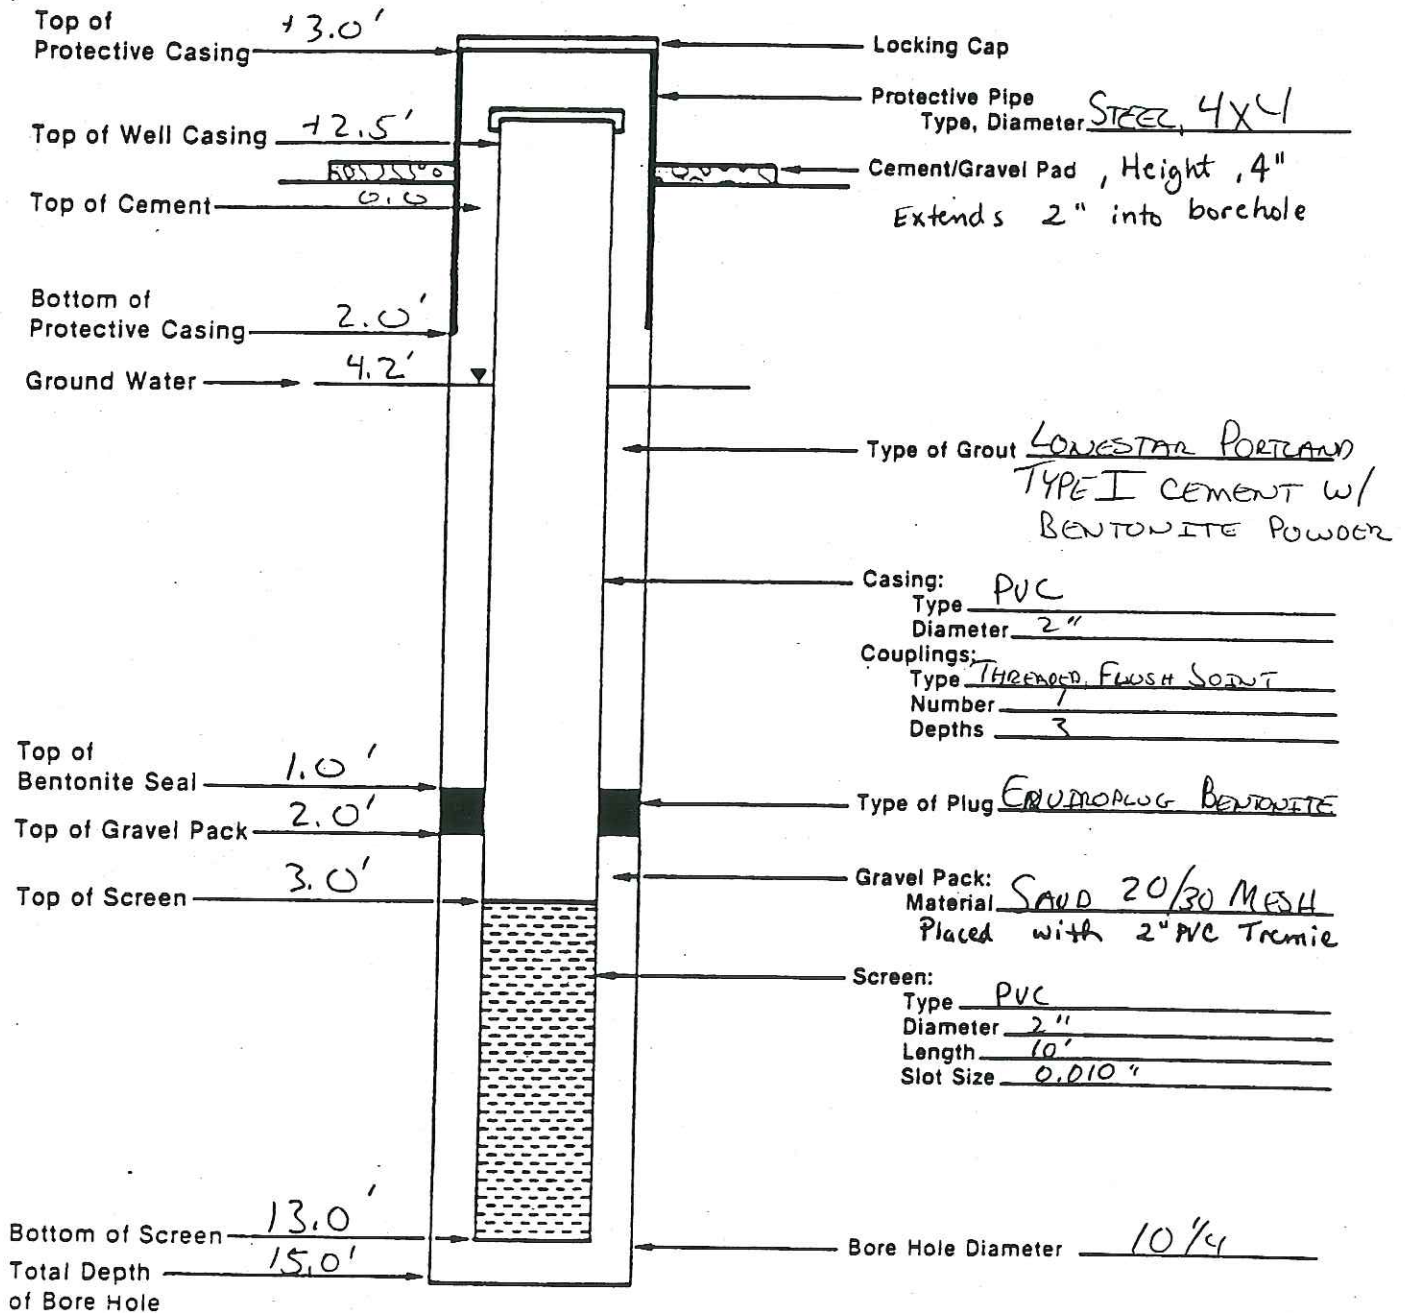 Top of
Protective Casing +3.0'
Top of Well Casing +2.5'
Top of Cement 0.0
Bottom of
Protective Casing 2.0'
Ground Water 4.2'
Top of
Bentonite Seal 1.0'
Top of Gravel Pack 2.0'
Top of Screen 3.0'
Bottom of Screen 13.0'
Total Depth 15.0'
of Bore Hole
Locking Cap
Protective Pipe
Type, Diameter STEEL, 4X4
Cement/Gravel Pad , Height , 4"
Extends 2" into borehole
Type of Grout LONESTAR PORTLAND
TYPE I CEMENT W/
BENTONITE POWDER
Casing:
Type PVC
Diameter 2"
Couplings:
Type THREADED, FLUSH JOINT
Number 1
Depths 3
Type of Plug ENVIROPLUG BENTONITE
Gravel Pack:
Material SAND 20/30 MESH
Placed with 2" PVC Tremie
Screen:
Type PVC
Diameter 2"
Length 10'
Slot Size 0.010"
Bore Hole Diameter 10 1/4